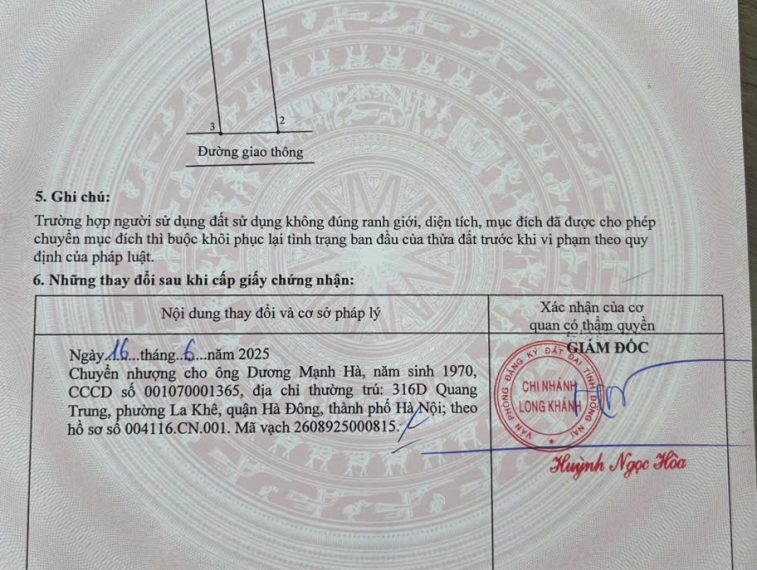 3
2
Đường giao thông
5. Ghi chú:
Trường hợp người sử dụng đất sử dụng không đúng ranh giới, diện tích, mục đích đã được cho phép
chuyển mục đích thì buộc khôi phục lại tình trạng ban đầu của thửa đất trước khi vi phạm theo quy
định của pháp luật.
6. Những thay đổi sau khi cấp giấy chứng nhận:
Nội dung thay đổi và cơ sở pháp lý
Xác nhận của cơ
quan có thẩm quyền
Ngày 16...tháng..6...năm 2025
Chuyển nhượng cho ông Dương Mạnh Hà, năm sinh 1970,
CCCD số 001070001365, địa chỉ thường trú: 316D Quang
Trung, phường La Khê, quận Hà Đông, thành phố Hà Nội; theo
hồ sơ số 004116.CN.001. Mã vạch 2608925000815.
GIÁM ĐỐC
VĂN PHÒNG ĐĂNG KÝ ĐẤT ĐAI TỈNH ĐỒNG NAI
CHI NHÁNH
LONG KHÁNH
Huỳnh Ngọc Hòa